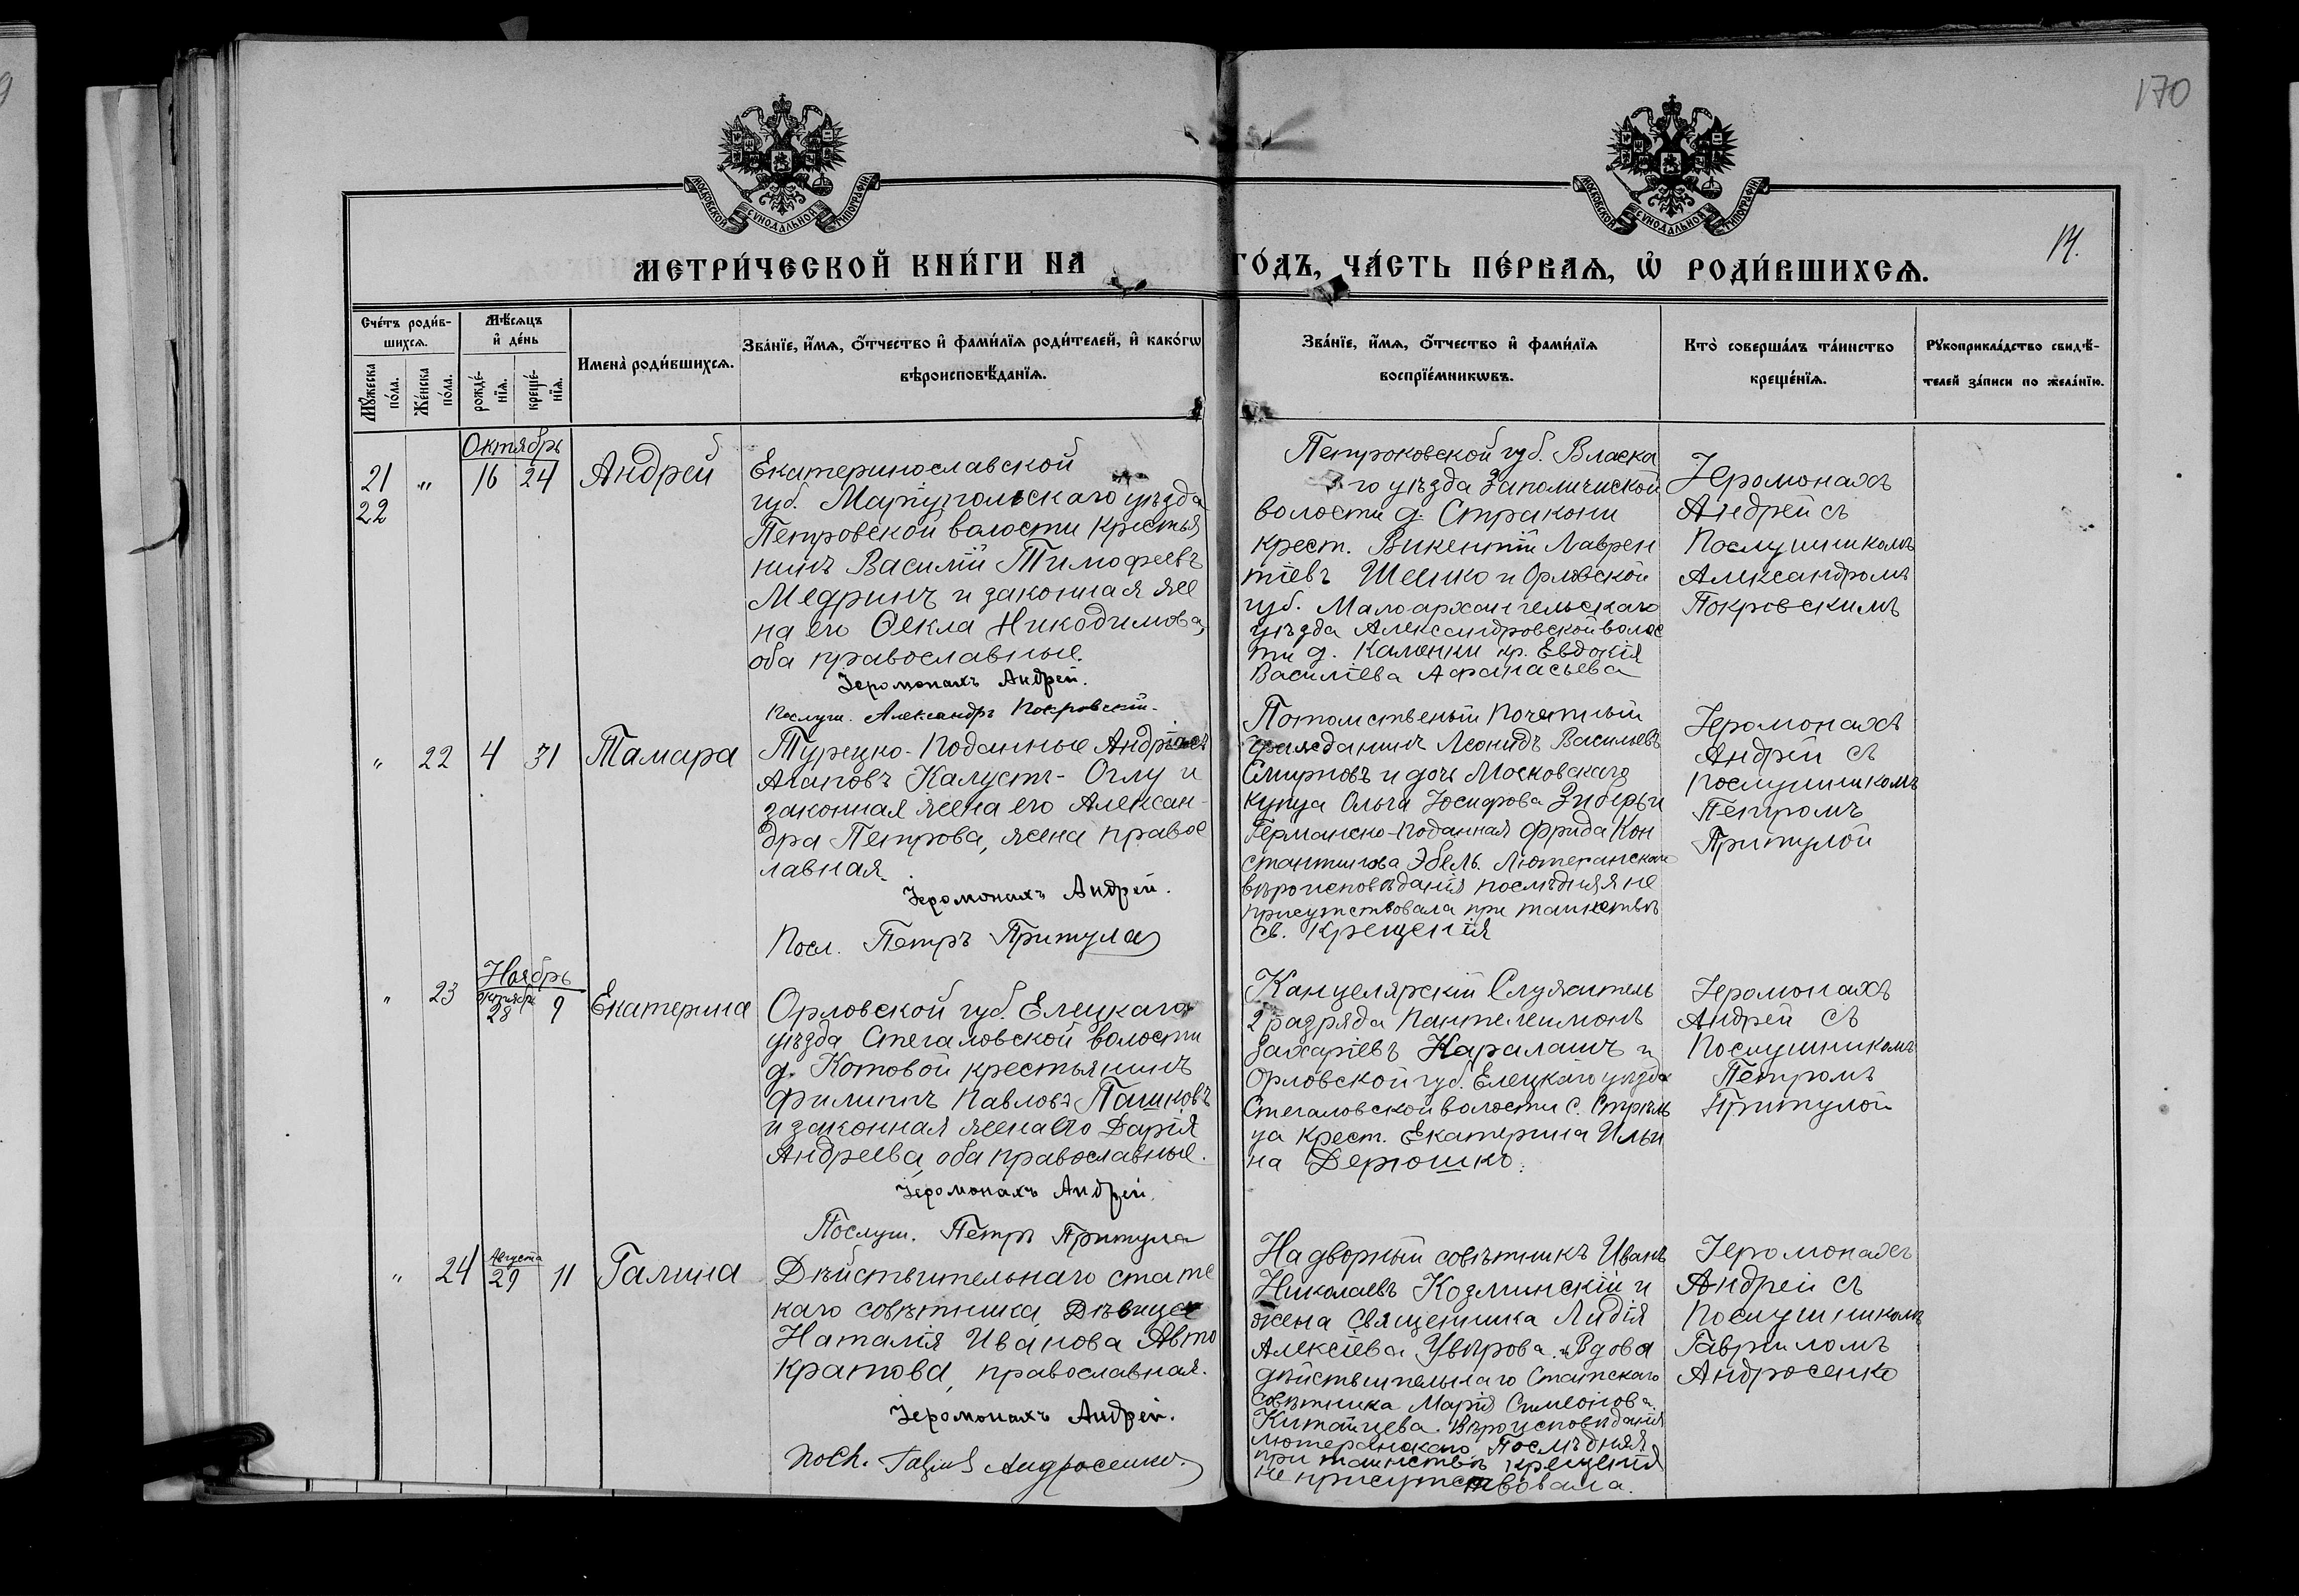 170
МОСКОВСКОЙ СѴНОДАЛЬНОЙ ТИПОГРАФІИ
МОСКОВСКОЙ СѴНОДАЛЬНОЙ ТИПОГРАФІИ
МЕТРИ́ЧЕСКОЙ КНИ́ГИ НА ГО́ДЪ, ЧА́СТЬ ПЕ́РВАѦ, Ѡ҆ РОДИ́ВШИХСѦ.
14.
Счéтъ роди́в-
шихсѧ.
Мꙋ́жеска
по́ла.
Же́нска
по́ла.
Мѣ́сѧцъ
и҆ де́нь
рожде́-
нїѧ.
креще́-
нїѧ.
Имена̀ роди́вшихсѧ.
Зва́нїе, и҆́мѧ, ѻ҆́тчество и҆ фами́лїѧ роди́телей, и҆ како́гѡ
вѣроисповѣ́данїѧ.
Зва́нїе, и҆́мѧ, ѻ҆́тчество и҆ фами́лїѧ
воспрїе́мникѡвъ.
Кто̀ соверша́лъ та́инство
креще́нїѧ.
Рꙋкоприкла́дство свидѣ́-
телей за́писи по жела́нїю.
Октябрь
21 " 16 24
22
Андрей
Екатеринославской
губ. Маріупольскаго уѣзда
Петровской волости крестья
нинъ Василій Тимофеевъ
Медринъ и законная же
на его Ѳекла Никодимова,
оба православные.
Іеромонахъ Андрей.
Послуш. Александръ Покровскій.
Петроковской губ. Власка
го уѣзда Заполичиской
волости д. Стракони
крест. Викентій Лаврен
тіевъ Шешко и Орловской
губ. Малоархангельскаго
уѣзда Александровской волос
ти д. Каменки кр. Евдокія
Василіева Афанасьева
Іеромонахъ
Андрей съ
Послушникомъ
Александромъ
Покровскимъ
" 22 4 31
Тамара
Турецко-Поданные Андріасъ
Агаповъ Калустъ-Оглу и
законная жена его Алексан-
дра Петрова, жена правос
лавная.
Іеромонахъ Андрей.
Посл. Петръ Притула
Потомственый Почетный
гражданинъ Леонидъ Васильевъ
Смирновъ и дочь Московскаго
купца Ольга Іосифова Зиберъ и
Германско-поданная Фрида Кон
стантинова Эбель. Лютеранскаго
вѣроисповѣданія послѣдняя не
присутствовала при таинствѣ
св. Крещенія
Іеромонахъ
Андрей съ
послушникомъ
Петромъ
Притулой
Ноябрь
" 23
Октября
28 9
Екатерина
Орловской губ. Елецкаго
уѣзда Стегаловской волости
д. Котовой крестьянинъ
Филиппъ Павловъ Пашковъ
и законная жена его Дарія
Андреева, оба православные.
Іеромонахъ Андрей.
Послуш. Петръ Притула
Канцелярскій Служитель
2 разряда Пантелеимонъ
Захаріевъ Каралашъ и
Орловской губ. Елецкаго уѣзда
Стегаловской волости с. Стрѣль
ца крест. Екатерина Ильи
на Дерюшко.
Іеромонахъ
Андрей съ
Послушникомъ
Петромъ
Притулой
" 24
Августа
29 11
Галина
Дѣйствительнаго статс
каго совѣтника Дѣвица
Наталія Иванова Авто
кратова, православная.
Іеромонахъ Андрей.
Посл. Гавріилъ Андросенко.
Надворный совѣтникъ Иванъ
Николаевъ Козминскій и
жена священника Лидія
Алексіева Увѣрова. и Вдова
дѣйствительнаго Статскаго
совѣтника Марія Симеонова
Китайцева. Вѣроисповѣданія
лютеранскаго. Послѣдняя
при таинствѣ крещенія
не присутствовала.
Іеромонахъ
Андрей съ
Послушникомъ
Гавриломъ
Андросенко